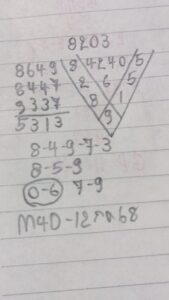 8203
8649 8 4 2 4 0 5
8447 2 6 5
9337 8 1
5313 9
8-4-9-7-3
8-5-9
0-6 7-9